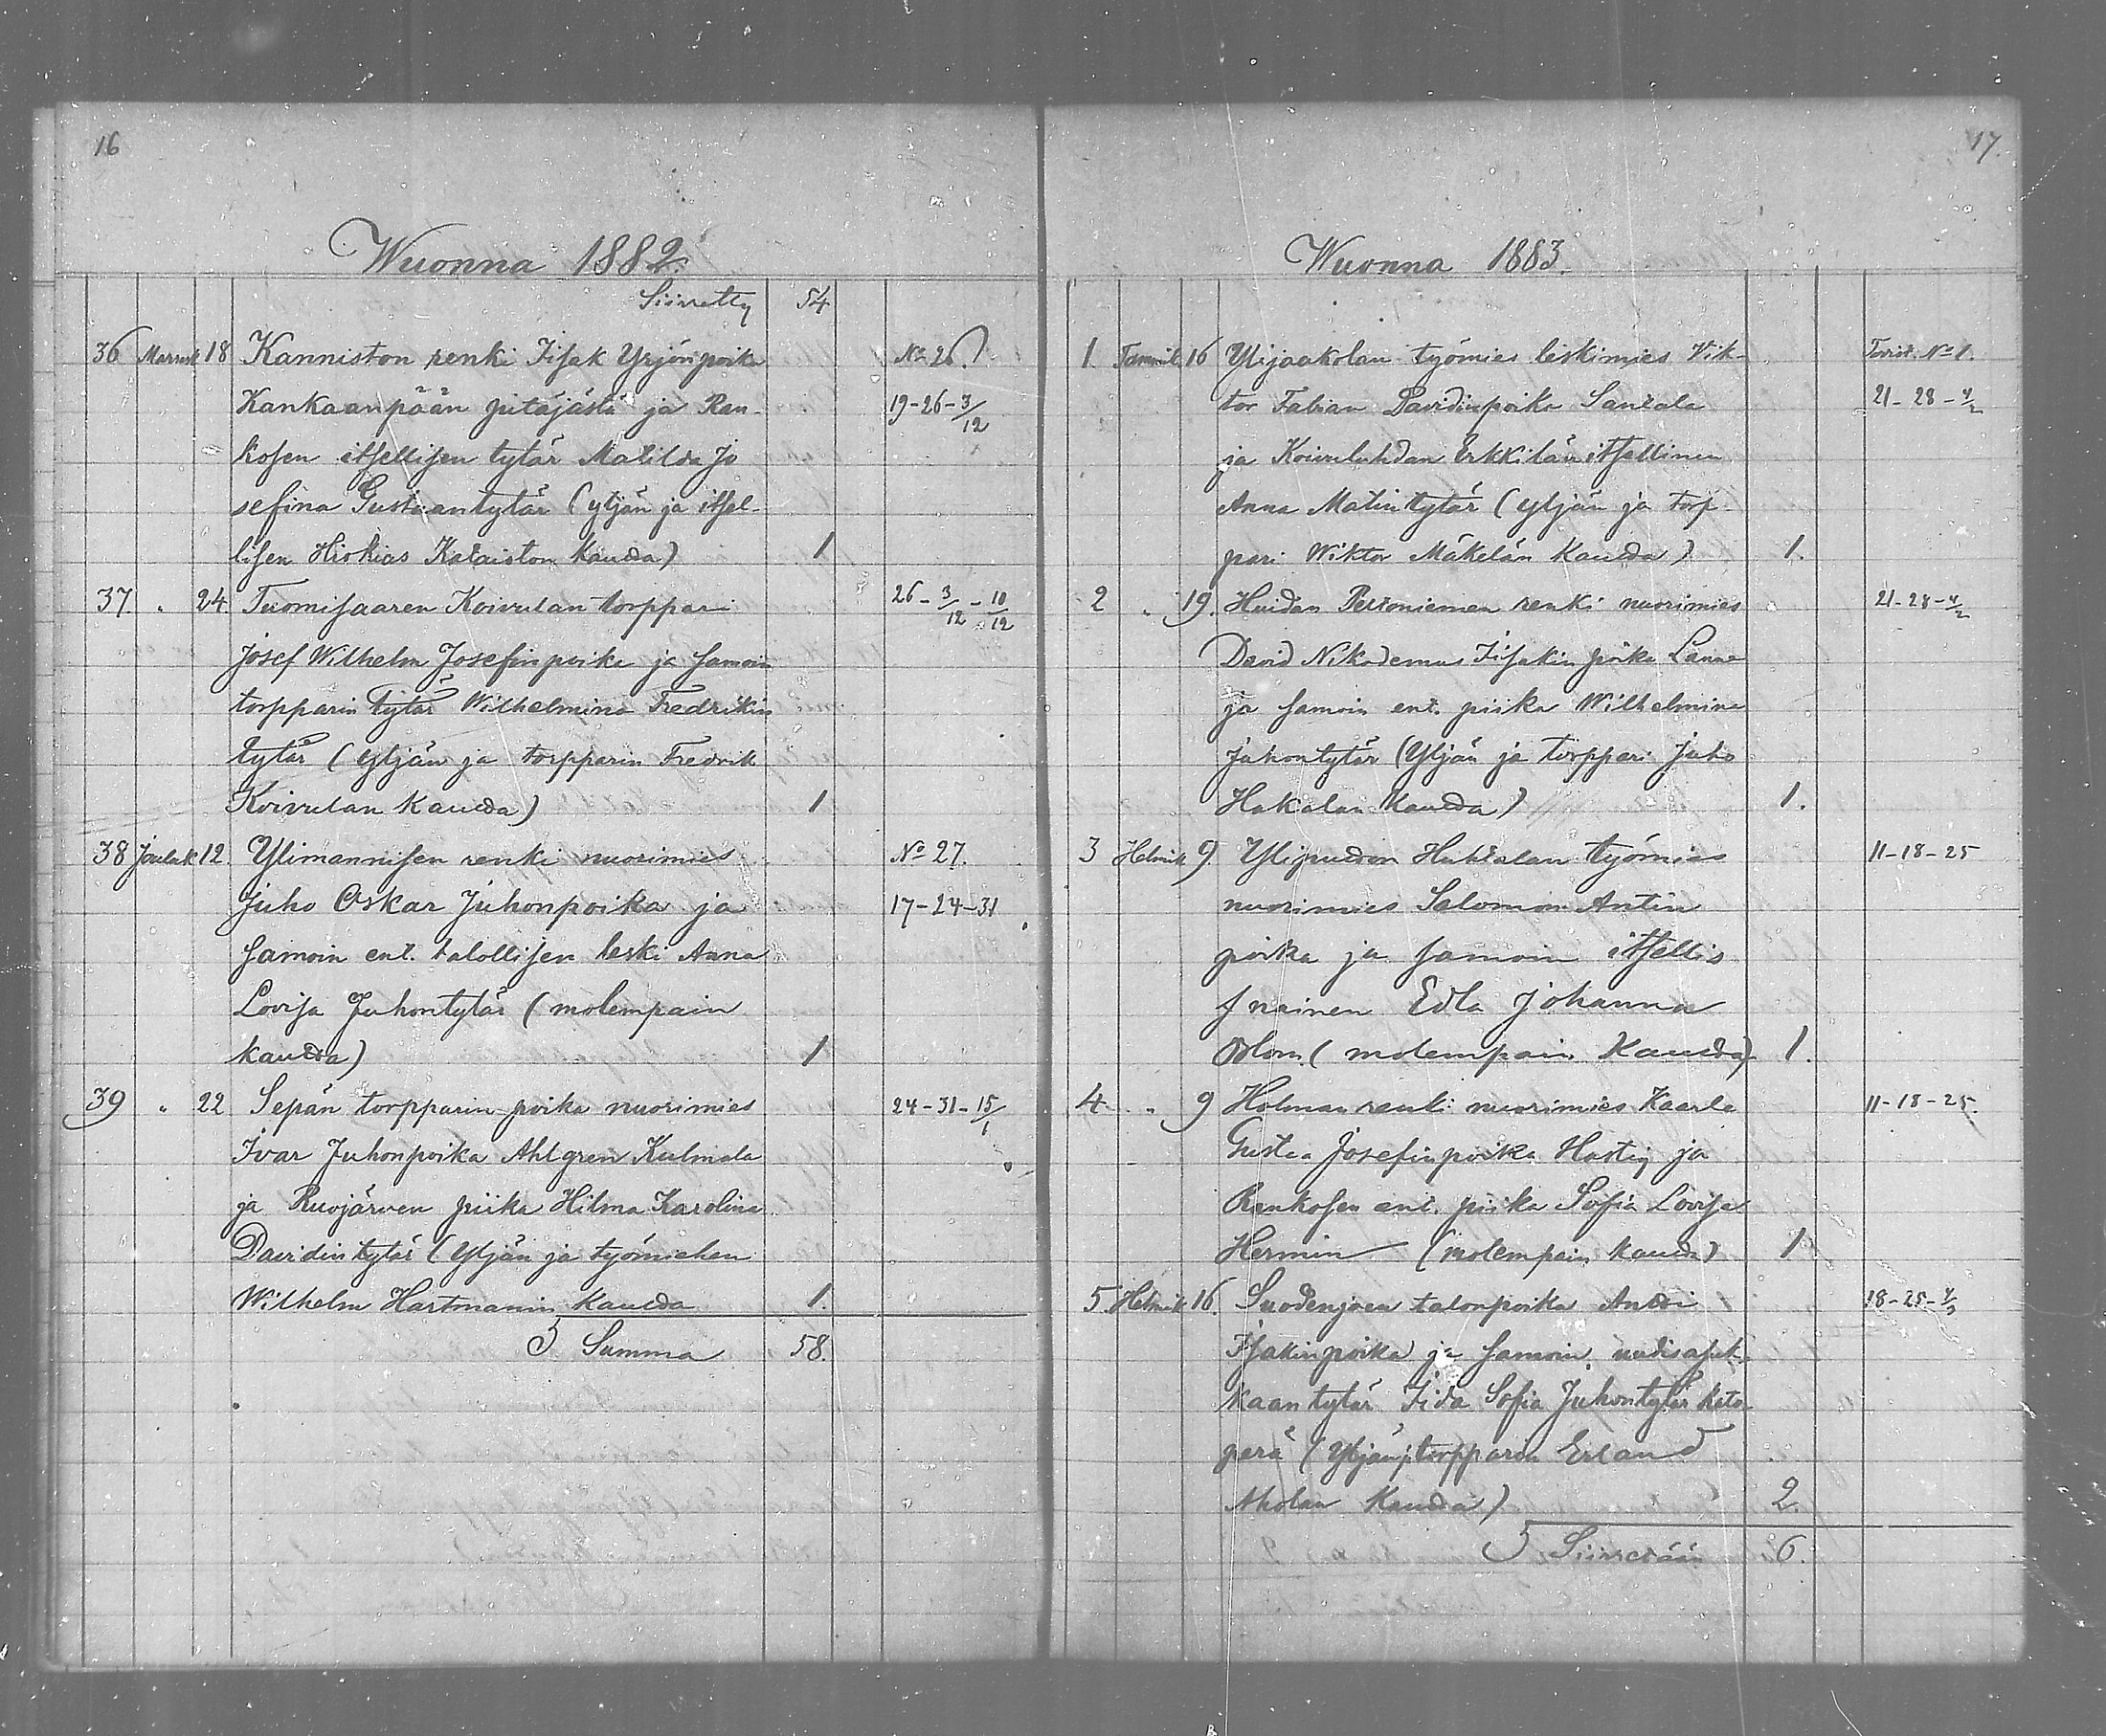 16
Wuonna 1882.
Siirretty 54
36 Marrask 18 Kanniston renki Iisak Yrjönpoika No 26.
Kankaanpään pitäjästä ja Ran- 19-26-3/12
kosen itsellisen tytär Matilda Jo
sefina Gustaantytär (yljän ja itsel-
lisen Hiskias Kataiston kautta) 1
37. " 24. Tuomisaaren Koivulan torppari 26-3/12-10/12
Josef Wilhelm Josefinpoika ja samoin
torpparin tytär Wilhelmina Fredrikin
tytär (yljän ja torpparin Fredrik
Koivulan kautta) 1
38 Jouluk 12. Ylimannisen renki nuorimies No 27.
Juho Oskar Juhonpoika ja 17-24-31
samoin ent. talollisen leski Anna
Lovisa Juhontytär (molempain
kautta) 1
39 " 22 Sepän torpparin poika nuorimies 24-31-15/1
Ivar Juhonpoika Ahlgren Kulmala
ja Ruojärwen piika Hilma Karolina
Davidintytär (Yljän ja työmiehen
Wilhelm Hartmanin kautta 1.
Summa 58.
17.
Wuonna 1883.
1. Tammik 16 Ylijaakolan työmies leskimies Vik- No 1.
tor Fabian Davidinpoika Santala 21-28-4/2
ja Koivuluhdan Erkkilän itsellinen
Anna Matintytär (yljän ja torp-
pari Wiktor Mäkelän kautta) 1.
2 " 19. Huidan Peltoniemen renki nuorimies 21-28-4/2
David Nikodemus Iisakin poika Lanne
ja samoin ent. piika Wilhelmina
Juhontytär (Yljän ja torppari Juho
Hakalan kautta) 1.
3 Helmik 9. Huhtalan työmies 11-18-25
nuorimies Salomon Antin
poika ja samoin itsellis
nainen Edla Johanna
Blom (molempain kautta) 1.
4 " 9 Holman renki nuorimies Kaarle 11-18-25.
Gustaa Josefinpoika Hastig ja
Rankosen ent. piika Sofia Lovisa
Hermin (molempain kautta) 1
5. Helmik 16. Suodenjoen talonpoika Antti 18-25-4/3
Isakinpoika ja samoin uudisasuk-
kaan tytär Iida Sofia Juhontytär Keto
perä (Yljän j. torpparin Erland
Aholan kautta) 2.
Siirretään 6.